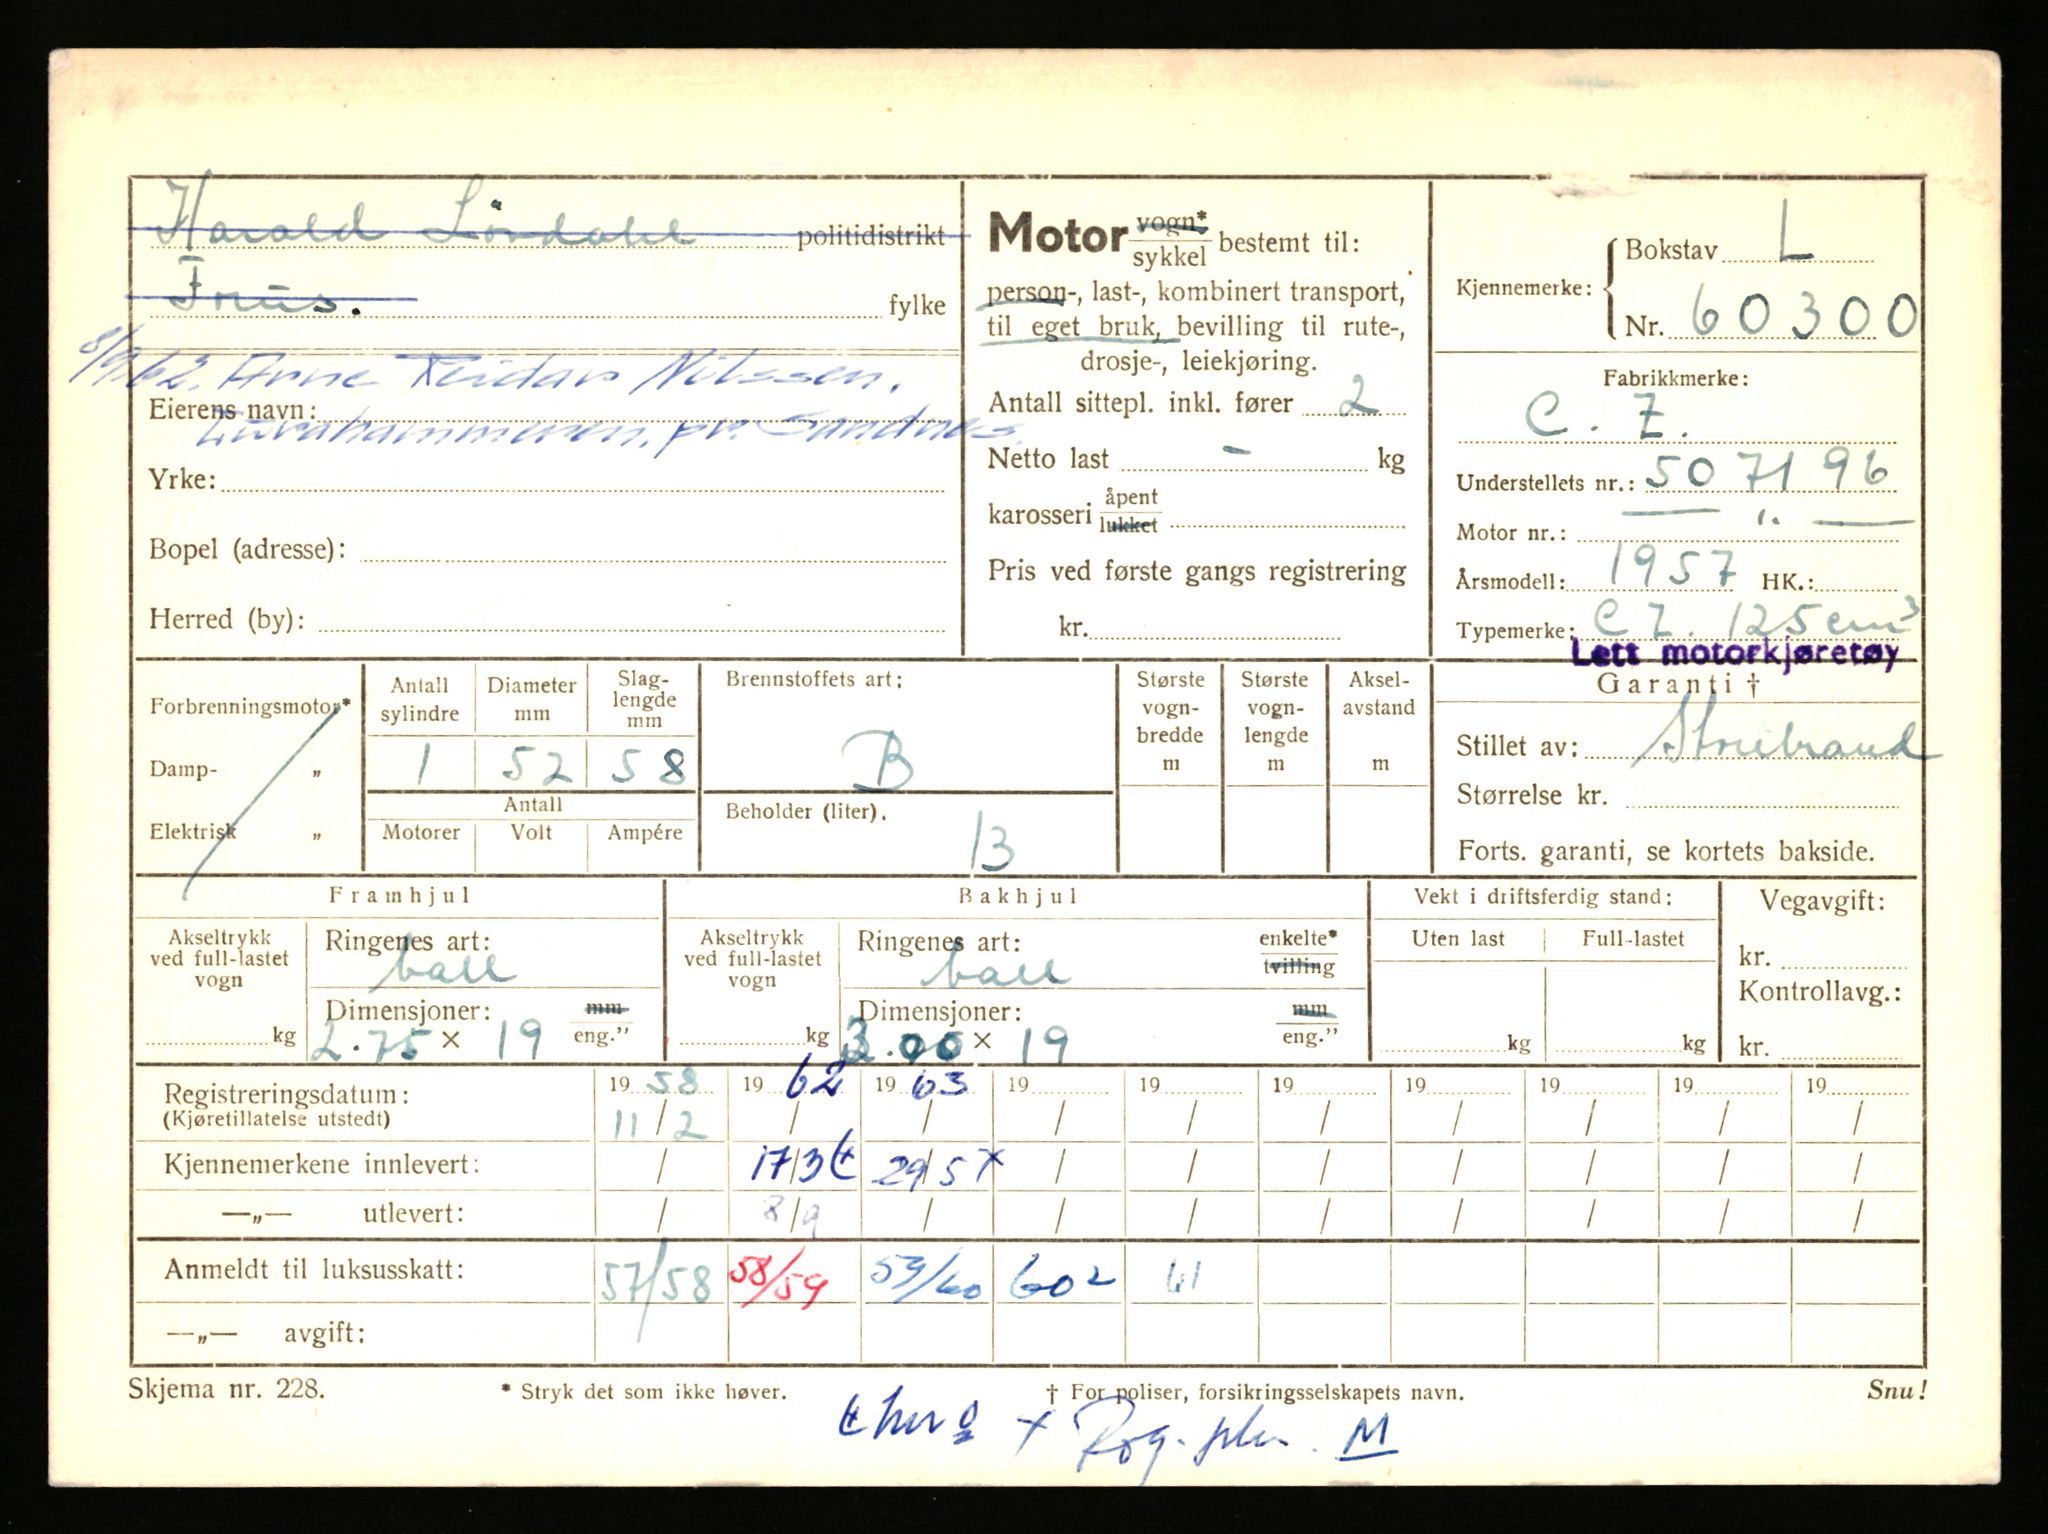 Harald Lördahl politidistrikt
Früs. fylke
8/9 62. Arne Reidar Nilssen.
Eierens navn:
Lurahammeren. pr. Sandnes.
Yrke:
Bopel (adresse):
Herred (by):
Motor vogn* sykkel bestemt til:
person-, last-, kombinert transport,
til eget bruk, bevilling til rute-,
drosje-, leiekjøring.
Antall sittepl. inkl. fører 2
Netto last - kg
karosseri åpent lukket
Pris ved første gangs registrering
kr.
Kjennemerke: Bokstav L
Nr. 60300
Fabrikkmerke:
C. Z.
Understellets nr.: 507196
Motor nr.: — ". —
Årsmodell: 1957 HK.:
Typemerke: C Z. 125 cm³
Lett motorkjøretøy
Garanti †
Stillet av: Storebrand
Størrelse kr.
Forts. garanti, se kortets bakside.
Forbrenningsmotor*
Damp- „
Elektrisk „
Antall sylindre Diameter mm Slaglengde mm
1 52 58
Antall
Motorer Volt Ampére
Brennstoffets art:
B
Beholder (liter).
13
Største vognbredde m
Største vognlengde m
Akselavstand m
Framhjul
Akseltrykk ved full-lastet vogn
kg
Ringenes art:
ball
Dimensjoner: mm
2.75 × 19 eng."
Bakhjul
Akseltrykk ved full-lastet vogn
kg
Ringenes art: enkelte*
ball tvilling
Dimensjoner: mm
3.00 × 19 eng."
Vekt i driftsferdig stand:
Uten last Full-lastet
kg kg
Vegavgift:
kr.
Kontrollavg.:
kr.
Registreringsdatum: 19 58 19 62 19 63 19 19 19 19 19 19 19
(Kjøretillatelse utstedt) 11/2 / / / / / / / / /
Kjennemerkene innlevert: / 17/3 ₺ 29/5 x / / / / / / /
—„— utlevert: / 8/9 / / / / / / / /
Anmeldt til luksusskatt: 57/58 58/59 59/60 60² 61
—„— avgift:
Skjema nr. 228. * Stryk det som ikke høver. † For poliser, forsikringsselskapets navn. Snu!
x Rog. M